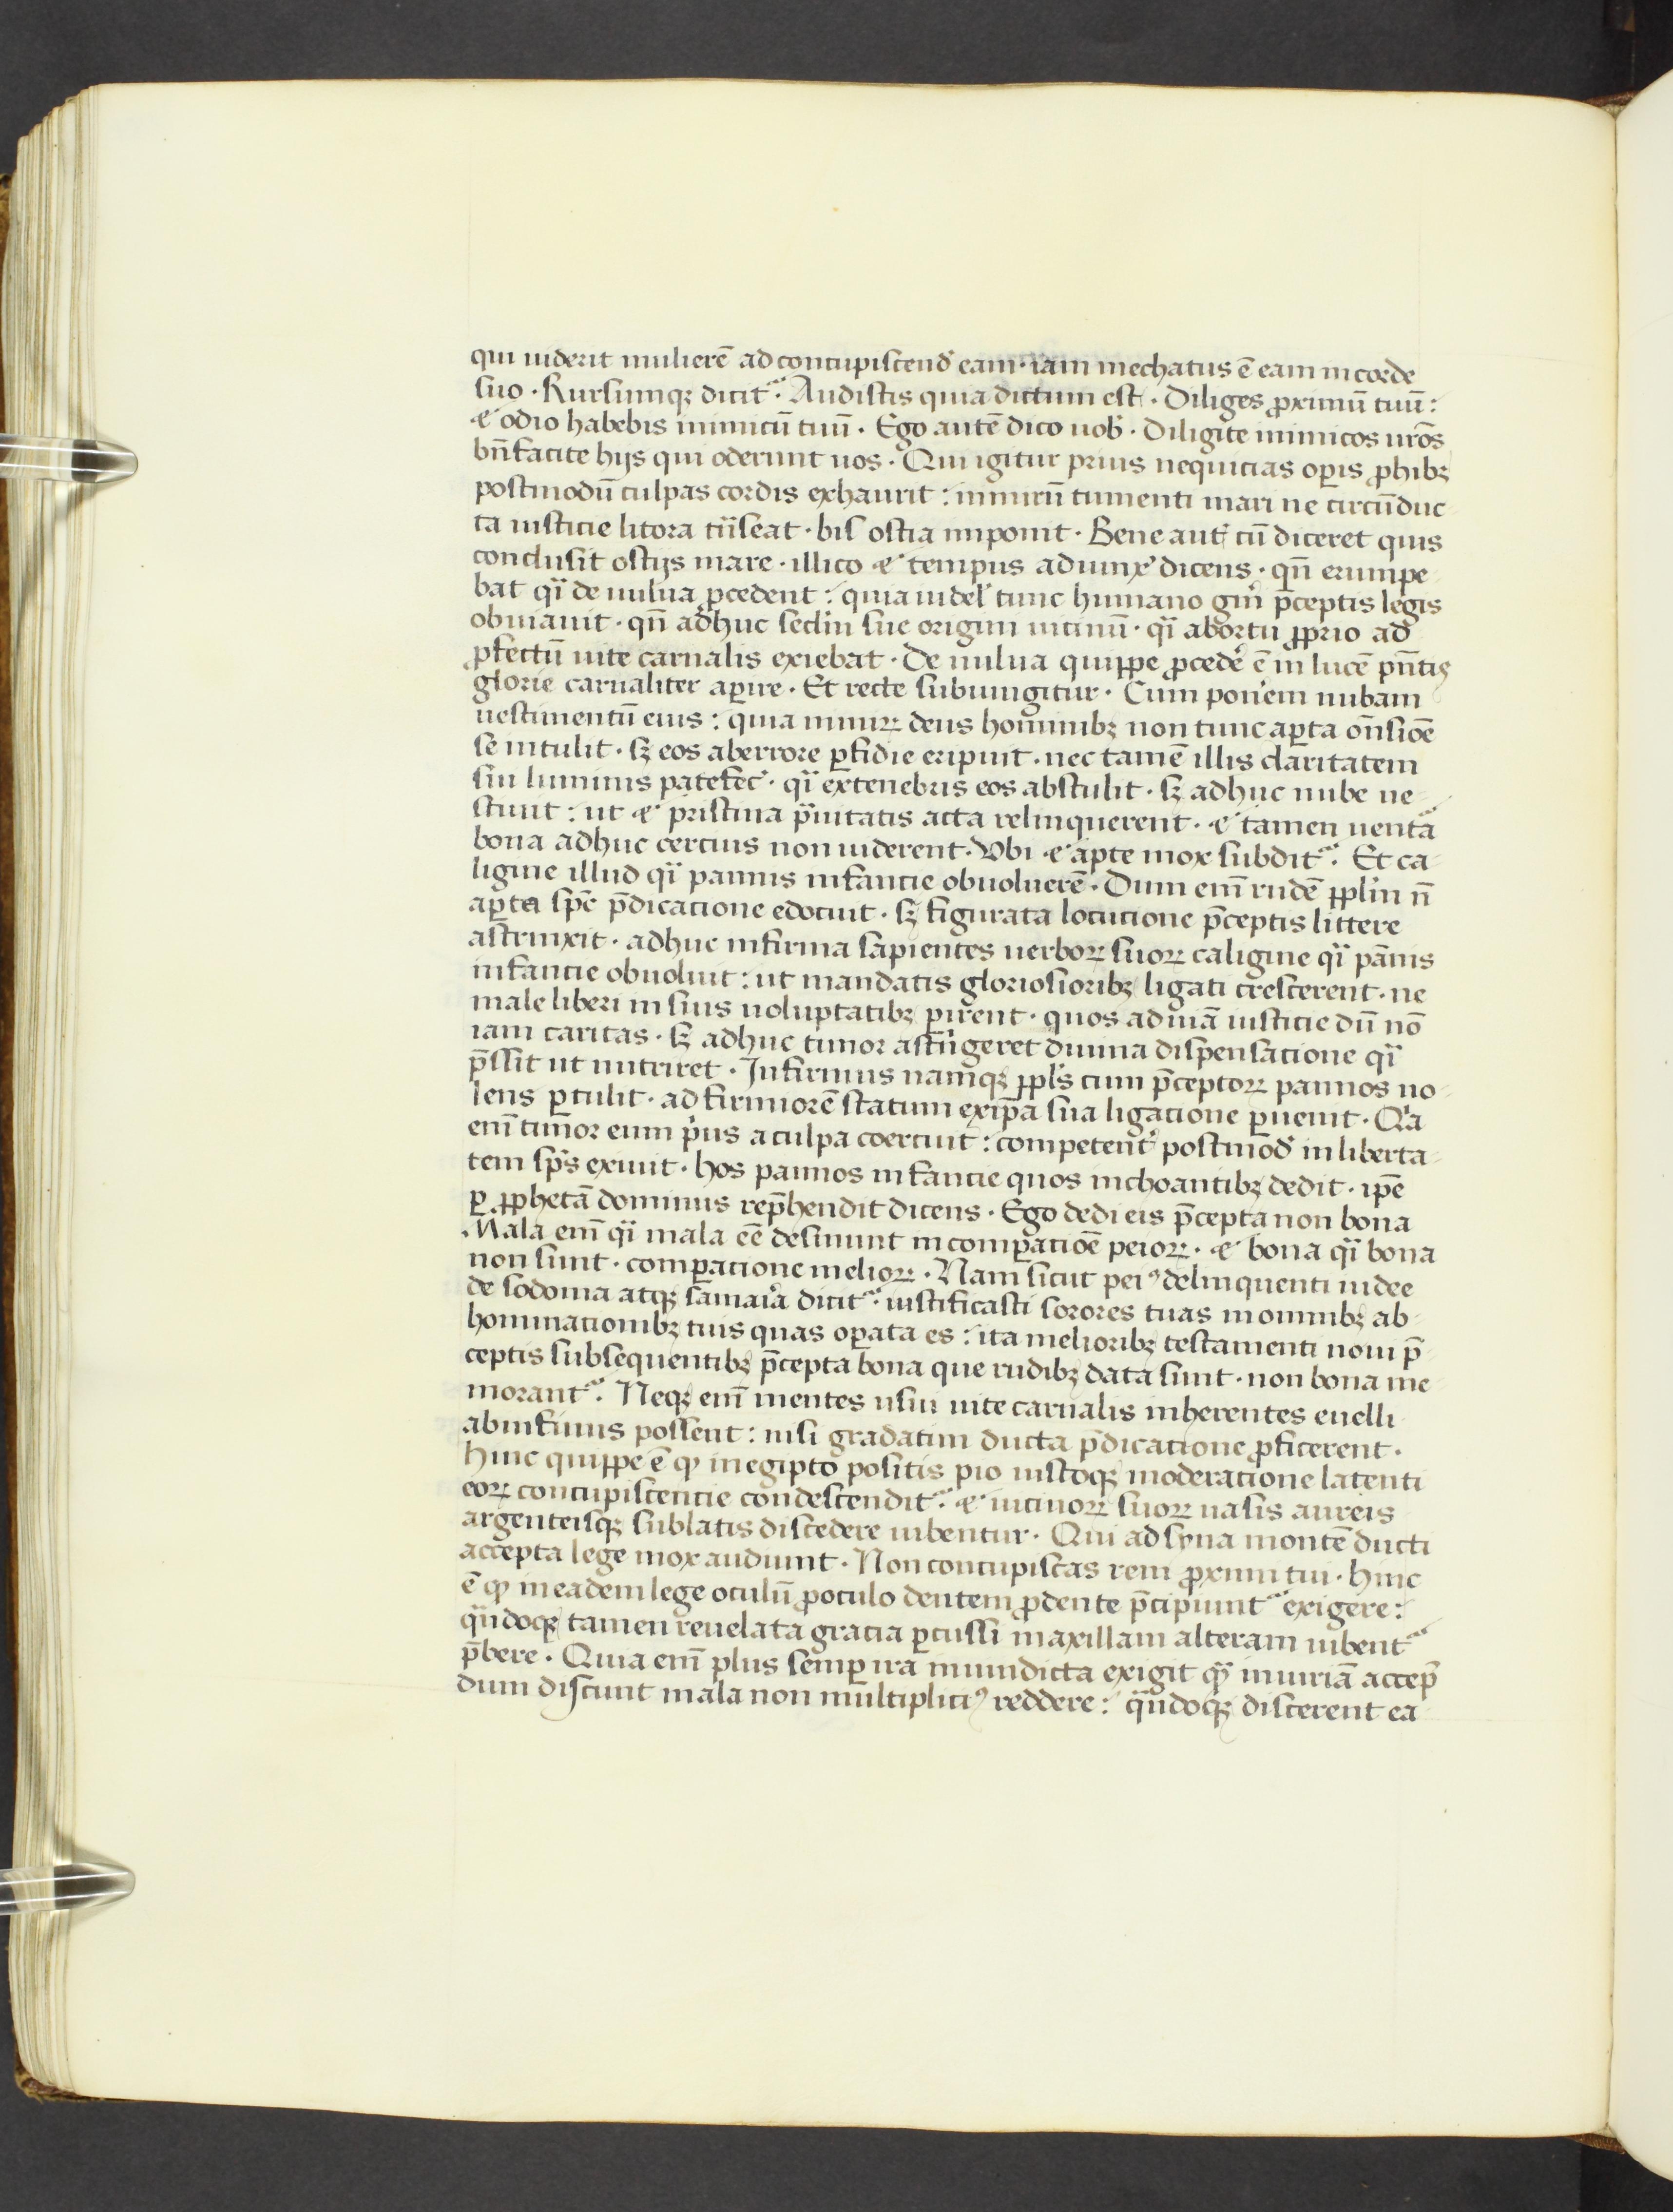 qui uiderit mulierē ad concupiscend' eam · iam mechatus ē eam in corde
suo · Rursumqꝫ dicit᷑ · Audistis quia dictum est · Diliges ꝓximū tuū :
⁊ odio habebis inimicū tuū · Ego autē dico uob' · diligite inimicos ur̄os
bn̄facite hijs qui oderunt uos · Qui igitur prius nequicias oꝑis ꝓhibꝫ
postmodū culpas cordis exhaurit : nimirū tumenti mari ne circūduc-
ta iusticie litora tͣnseat · bis ostia imponit · Bene aut̄ cū diceret quis
conclusit ostijs mare · illico ⁊ tempus adiunx' dicens · qn̄ erumpe-
bat qͣi de uulua ꝓcedens : quia uidel' tunc humano gn̄i p̄ceptis legis
obuiauit · qn̄ adhuc sec̄lm sue origini uicinū · qͣi ab ortu ꝓprio ad
ꝓfectū uite carnalis exiebat · De uulua quippe ꝓcedē ē in lucē pn̄tis
glorie carnaliter aꝑire · Et recte subiungitur · Cum ponem nubam
uestimentū eius : quia nimirꝝ deus hominibꝫ non tunc aꝑta on̄sioē
se intulit · sꝫ eos ab errore ꝑfidie eripuit · nec tamē illis claritatem
sui luminis patefec̄ · qͣi ex tenebris eos abstulit · sꝫ adhuc nube ue-
stiuit : ut ⁊ pristina pͣuitatis acta relinquerent · ⁊ tamen uent᷑a
bona adhuc cercius non uiderent · Vbi ⁊ apte mox subdit᷑ · Et ca-
ligine illud qͣi pannis infancie obuoluerē · Dum em̄ rudē ppl'm n̄
aꝑta spē p̄dicacione edocuit · sꝫ figurata locucione p̄ceptis littere
astrinxit · adhuc infirma sapientes uerboꝝ suoꝝ caligine qͣi pānis
infancie obuoluit : ut mandatis gloriosioribꝫ ligati crescerent · ne
male liberi in suis uoluptatibꝫ ꝑirent · quos ad uiā iusticie dū nō
iam caritas · sꝫ adhuc timor astͥngeret diuina dispensatione qͣi
p̄ssit ut nutriret · Infirmus namqꝫ ppl's cum p̄ceptoꝝ pannos no-
lens ꝑtulit · ad firmiorē statum ex ip̄a sua ligacione ꝑuenit · Qͥa
em̄ timor eum pͥus a culpa coercuit : competent' postmod' in liberta-
tem sp̄s exiuit · hos pannos infancie quos inchoantibꝫ dedit · ip̄e
ꝑ ꝓphetā dominus rep̄hendit dicens · Ego dedi eis p̄cepta non bona
Mala em̄ qͣi mala eē desinunt in comꝑatioē peioꝝ · ⁊ bona qͣi bona
non sunt · comꝑacione melioꝝ · Nam sicut peiꝰ delinquenti iudee
de sodoma atqꝫ samaria dicit᷑ · iustificasti sorores tuas in omnibꝫ ab-
hominacionibꝫ tuis quas oꝑata es : ita melioribꝫ testamenti noui p̄-
ceptis subsequentibꝫ p̄cepta bona que rudibꝫ data sunt · non bona me-
morant᷑ · Neqꝫ em̄ mentes usui uite carnalis inherentes euelli
ab infimis possent : nisi gradatim ducta p̄dicatione ꝓficerent ·
Hinc quippe ē ꝙ in egipto positis pio iustoqꝫ moderacione latenti
eoꝝ concupiscencie condescendit᷑ · ⁊ uicinoꝝ suoꝝ uasis aureis
argenteisqꝫ sublatis discedere iubentur · Qui ad syna montē ducti
accepta lege mox audiunt · Non concupiscas rem ꝓximi tui · Hinc
ē ꝙ in eadem lege oculū ꝓ oculo dentem ꝓ dente p̄cipiunt᷑ exigere :
qͣndoqꝫ tamen reuelata gracia ꝑcussi maxillam alteram iubent᷑
p̄bere · Quia em̄ plus semꝑ ira in uindicta exigit qͣꝫ iniuriā accep̄
dum discunt mala non multipliciꝰ reddere : qͣndoqꝫ discerent ea